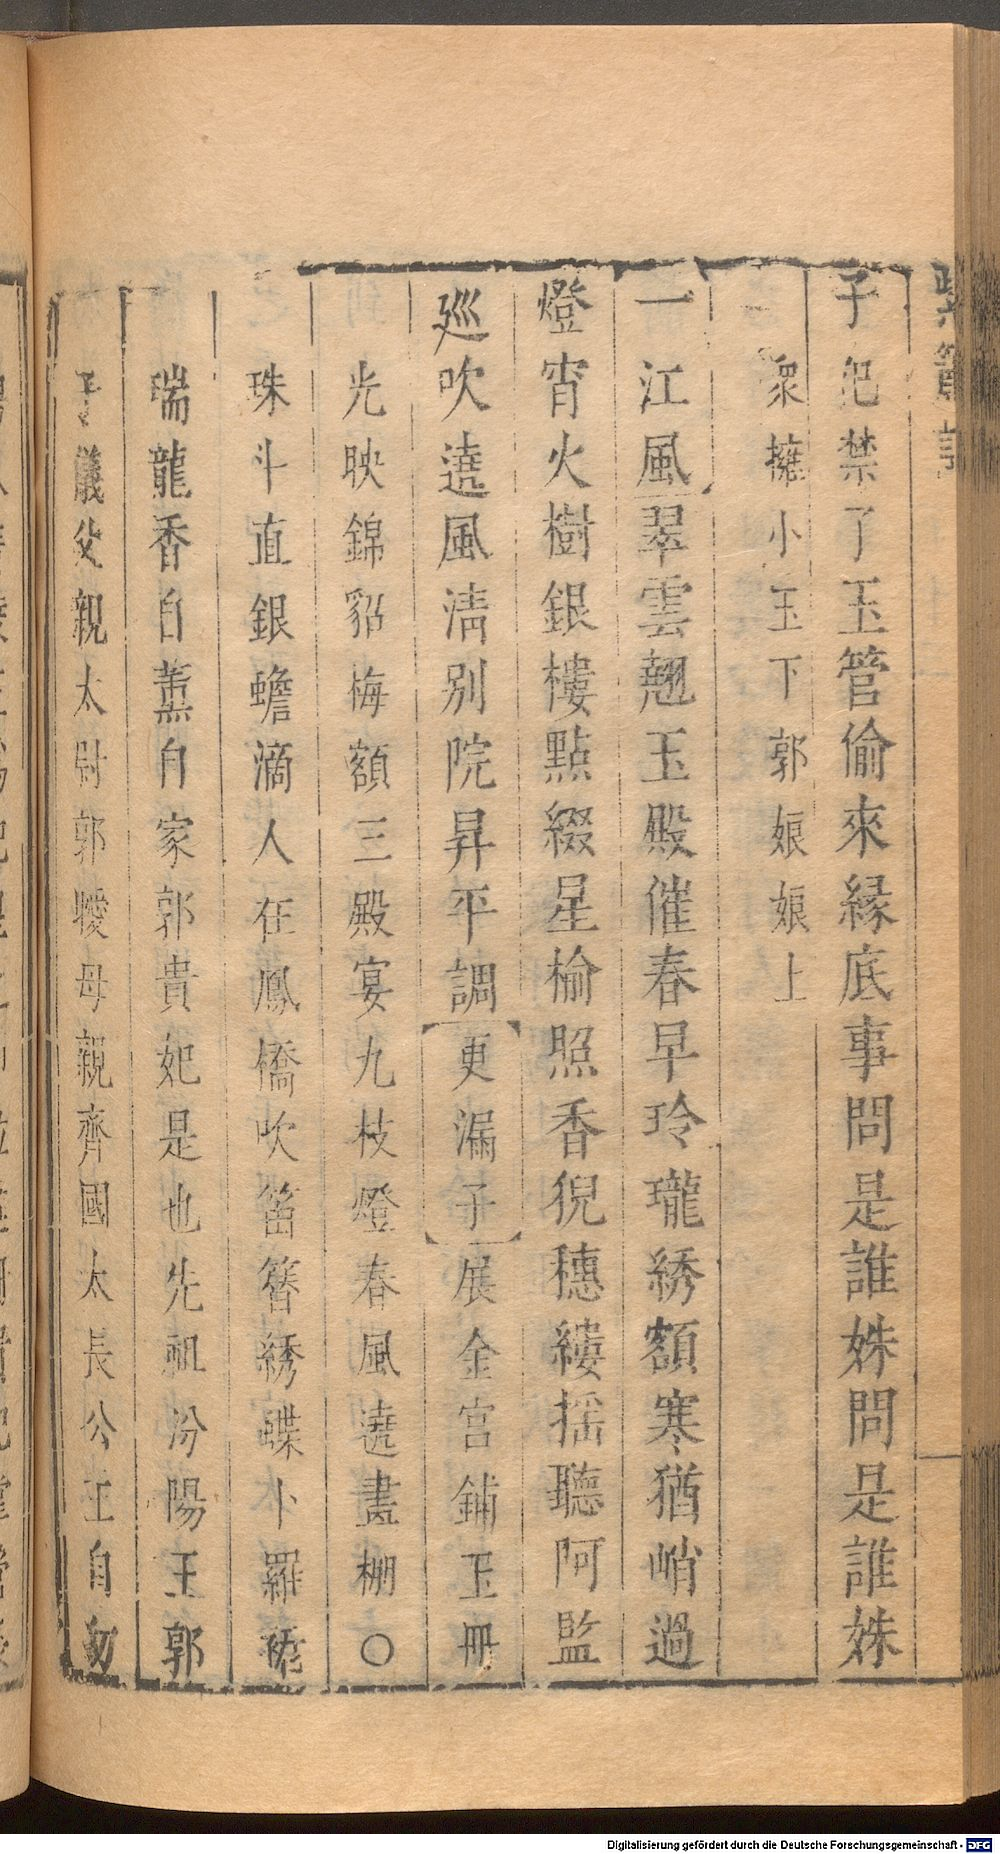 紫簫記
子犯禁了玉管偷來緣底事問是誰姝問是誰姝
衆擁小玉下郭娘娘上
一江風翠雲翹玉殿催春早玲瓏綉額寒猶峭過
燈宵火樹銀樓點綴星榆照香猊穗縷揺聽阿監
廵吹遶風淸別院昇平調更漏子展金宫鋪玉冊
光映錦貂梅額三殿宴九枝燈春風遶畫棚〇
珠斗直銀蟾滴人在鳳橋吹笛簪綉蝶卜羅裙
瑞龍香自薫自家郭貴妃是也先祖汾陽王郭
子儀父親太尉郭曖母親齊國太長公主自㓜
Digitalisierung gefördert durch die Deutsche Forschungsgemeinschaft - DFG